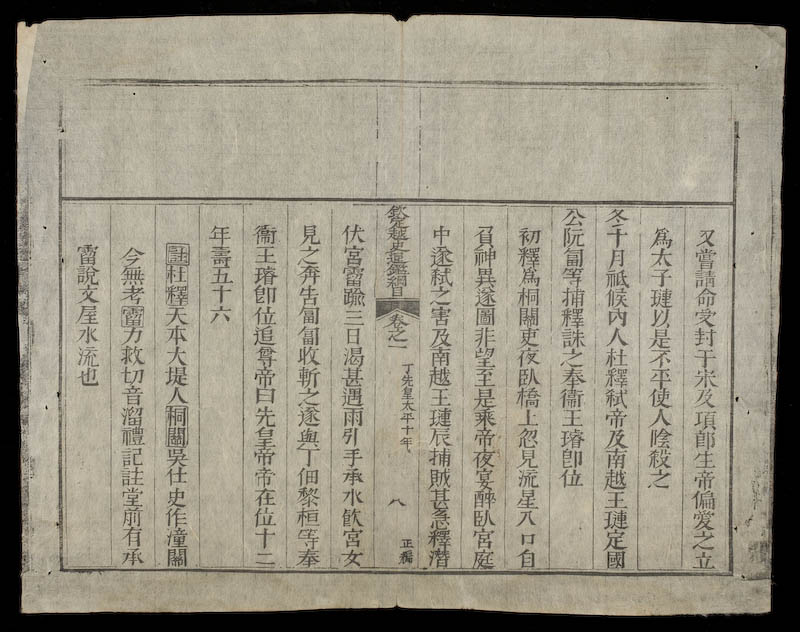 又嘗請命受封于宋及項郎生帝偏愛之立
為太子璉以是不平使人陰殺之
冬十月祗候內人杜釋弒帝及南越王璉定國
公阮匐等捕釋誅之奉衞王璿卽位
初釋爲桐關吏夜臥橋上忽見流星入口自
負神異遂圖非望至是乘帝夜宴醉臥宮庭
中遂弒之害及南越王璉辰捕賊甚急釋潛
欽定越史通鑑綱目 卷之一 丁先皇太平十年 八 正編
伏宮霤踰三日渴甚遇雨引手承水飲宮女
見之奔告匐匐收斬之遂與丁佃黎桓等奉
衞王璿卽位追尊帝曰先皇帝帝在位十二
年壽五十六
註杜釋天本大堤人桐關吳仕史作潼關
今無考霤力救切音溜禮記註堂前有承
霤說文屋水流也